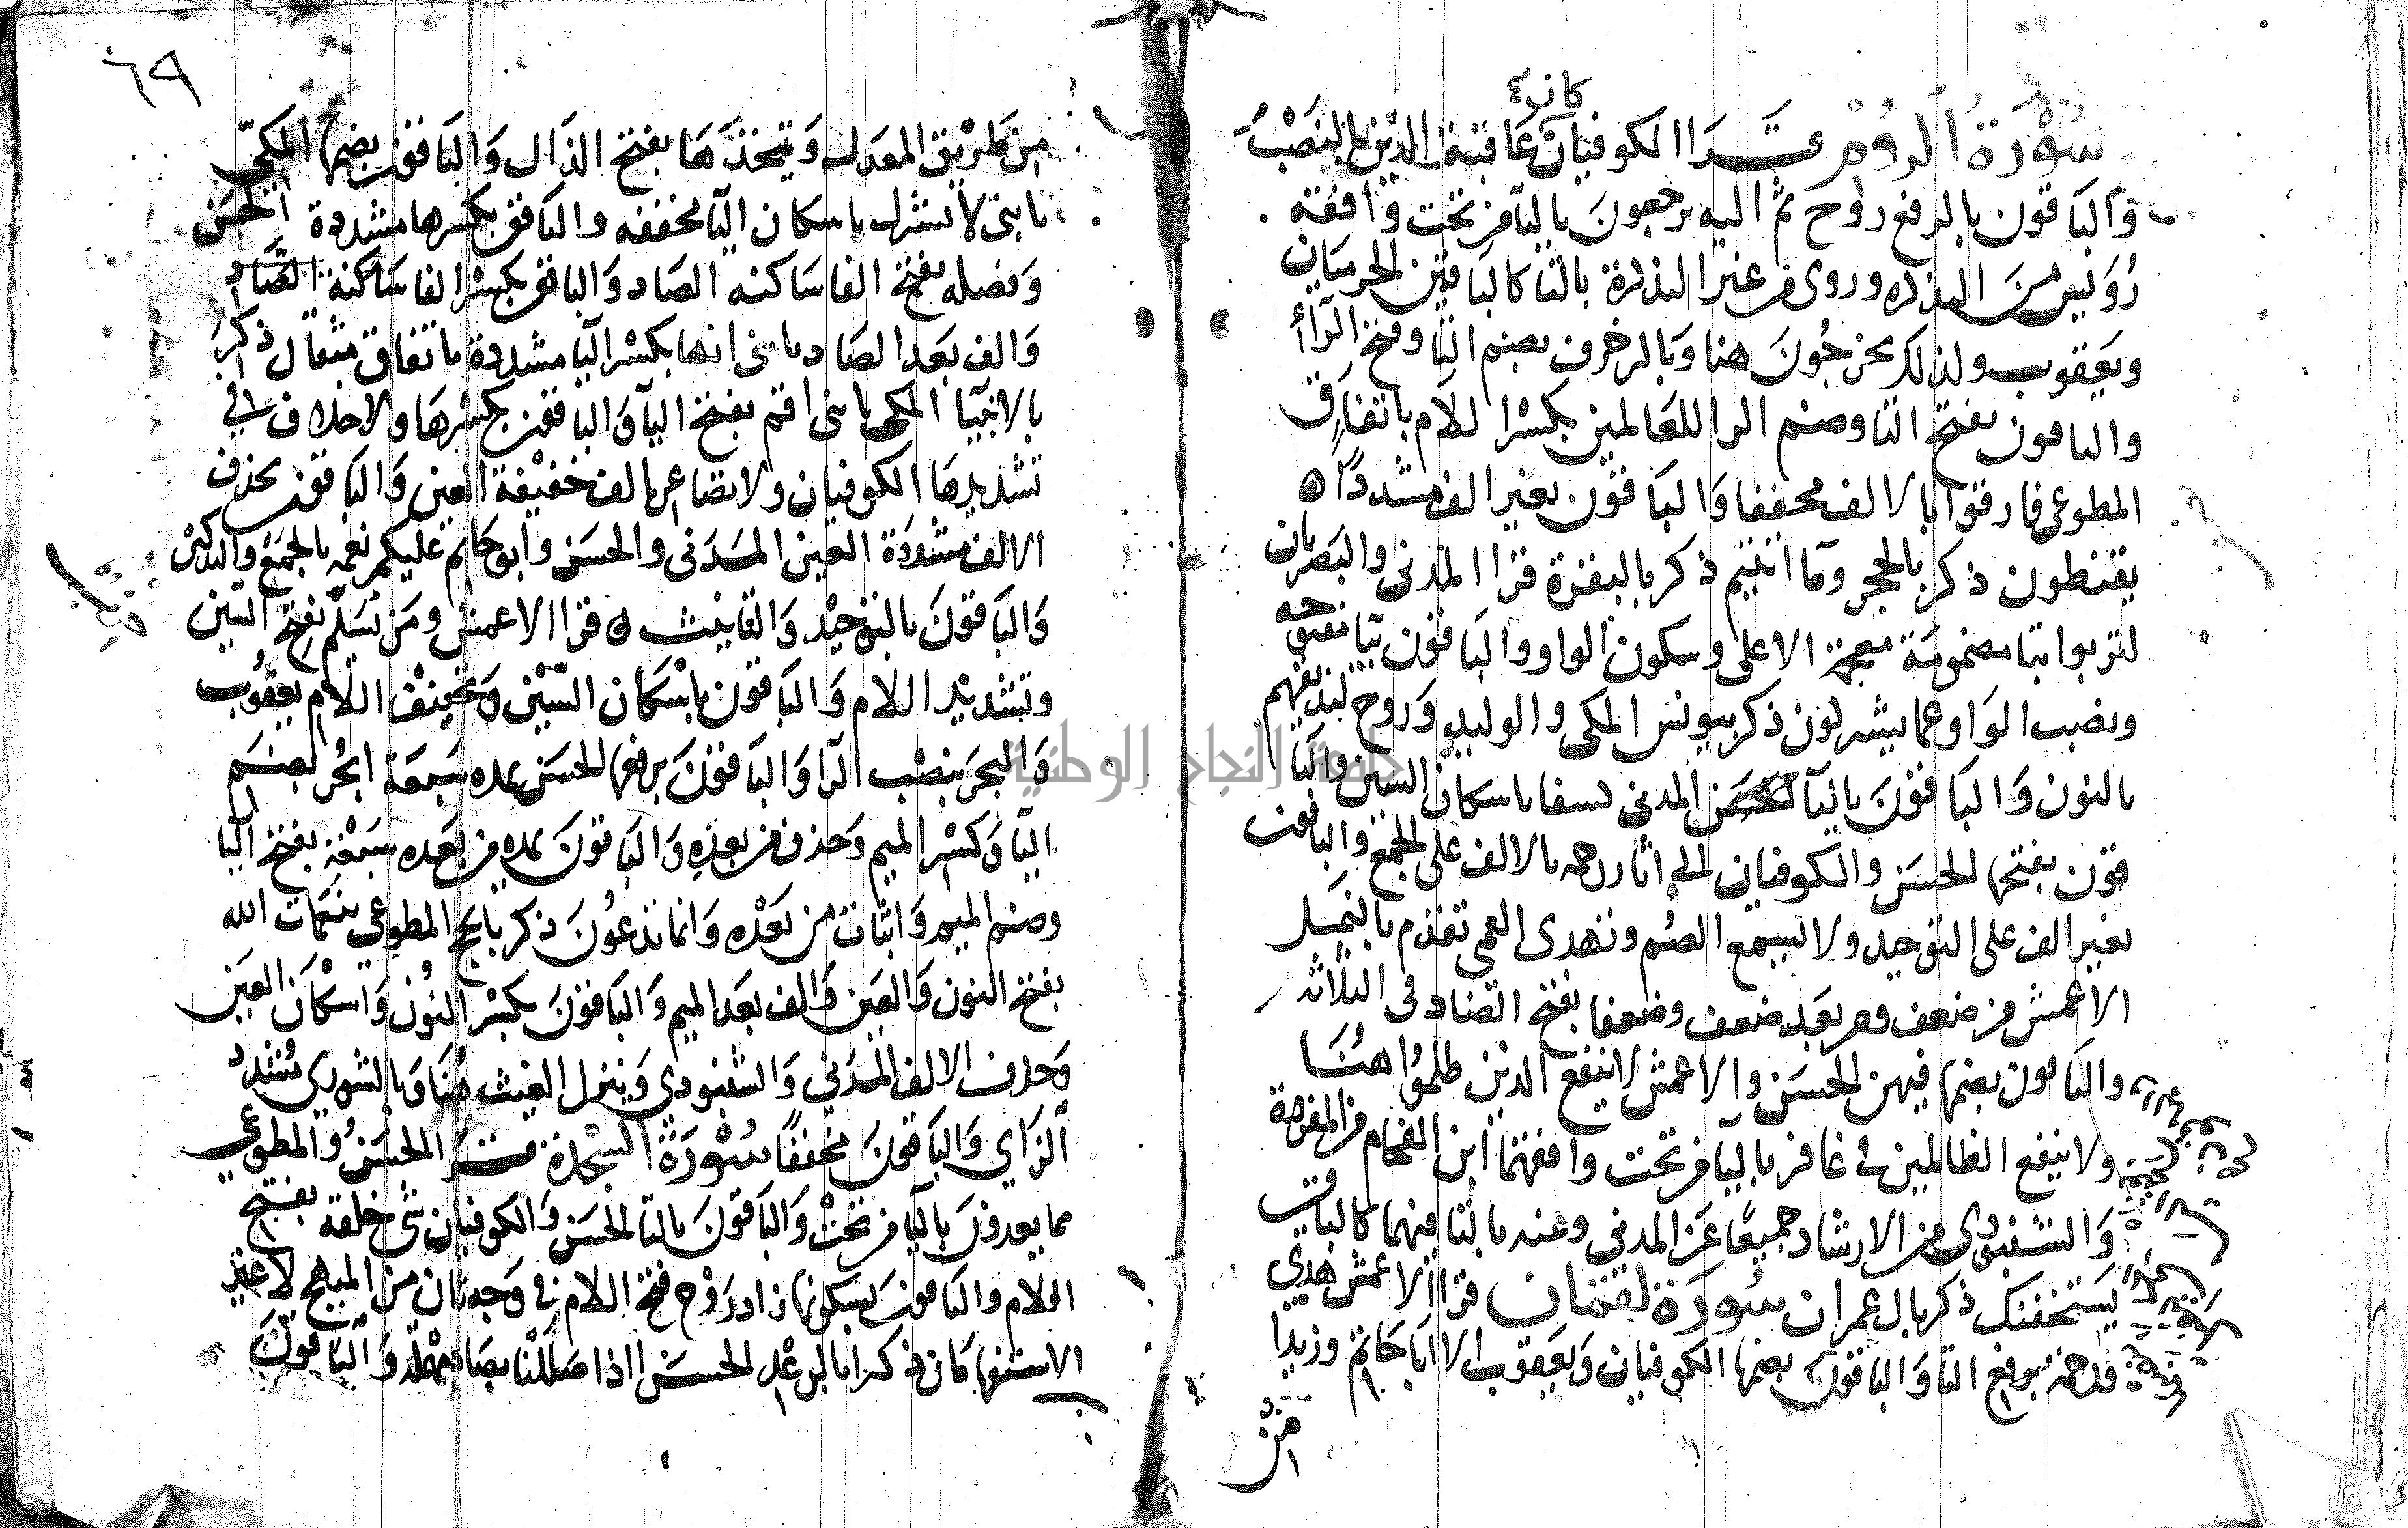 كان
سورة الروم قرا الكوفيان عاقبة الذين بالنصب
والباقون بالرفع روح ثم اليه يرجعون باليا من تحت وافقه
رويس من التذكره وروى من غير التذكرة بالتا كالباقين الحرميان
ويعقوب ولذلك يخرجون هنا وبالزخرف بضم التا وفتح الرا
والباقون بفتح التا وضم الرا للعالمين بكسر اللام باتفاق
المطوعى فارقوا بالالف مخففا والباقون بغير الف مشددا ه
يقنطون ذكر بالحجر وما اتيتم ذكر بالبقرة قرا المدنى والبصريان
لتربوا بتا مضمومة معجمة الاعلى وسكون الواو والباقون بيا مفتوحه
ونصب الواو عما يشركون ذكر بيونس المكى والوليد وروح لنذيقهم
بالنون والباقون باليا الحسن المدنى كسفا باسكان السين والبا
قون بفتحها الحسن والكوفيان الى اثار رحمه بالالف على الجمع والباقون
بغير الف على التوحيد ولا تسمع الصم وتهدى العمى تقدم بالنمل
الاعمش من ضعف ومن بعد ضعف وضعفا بفتح الضاد فى الثلاثه
والباقون بضمها فيهن الحسن والاعمش لا ينفع الذين ظلموا هنا
ولا ينفع الظالمين فى غافر باليا من تحت وافقهما ابن الفحام من المفردة
والشنبوذى من الارشاد جميعا عن المدنى وعنه بالتا فيهما كالباقين
يستخفنك ذكر بال عمران سورة لقمان قرا الاعمش هدى
ورحمة برفع التا والباقون بضمها الكوفيان ويعقوب الا ابا حاتم وزيدا
من
٦٩
من طريق المعدل ويتخذها بفتح الذال والباقون بضمها المكى
يا بنى لا تشرك باسكان اليا مخففه والباقون بكسرها مشددة الحسن
وفصله بفتح الفا ساكنه الصاد والباقون بكسر الفا ساكنة الصاد
والف بعد الصاد يا بنى انها بكسر اليا مشددة باتفاق مثقال ذكر
بالانبيا المكى يا بنى اقم بفتح اليا والباقون بكسرها ولا خلاف فى
تشديدها الكوفيان ولا تصاعر بالف خفيفة العين والباقون بحذف
الالف مشددة العين المدنى والحسن وابو حاتم عليكم نعمه بالجمع والتذكير
والباقون بالتوحيد والتانيث ه قرا الاعمش ومن يسلم بفتح السين
وتشديد اللام والباقون باسكان السين وتخفيف اللام يعقوب
والبحر بنصب الرا والباقون برفعها الحسن يمده سبعة ابحر بضم
اليا وكسر الميم وحذف من بعده والباقون يمده من بعده سبعة بفتح اليا
وضم الميم واثبات من بعده وانما تدعون ذكر بالحج المطوعى بنعمات الله
بفتح النون والعين والف بعد الميم والباقون بكسر النون واسكان العين
وحذف الالف المدنى والشنبوذى وينزل الغيث هنا وبالشورى مشدد
الزاي والباقون مخففا سورة السجدة قرا الحسن والمطوعي
مما يعدون باليا من تحت والباقون بالتا الحسن والكوفيان شى خلقه بفتح
اللام والباقون بسكونها زاد روح فتح اللام فى وجه ثان من المبهج لا غير
الاستفهامان ذكرا بالرعد الحسن ااذا صللنا بصاد مهملة والباقون